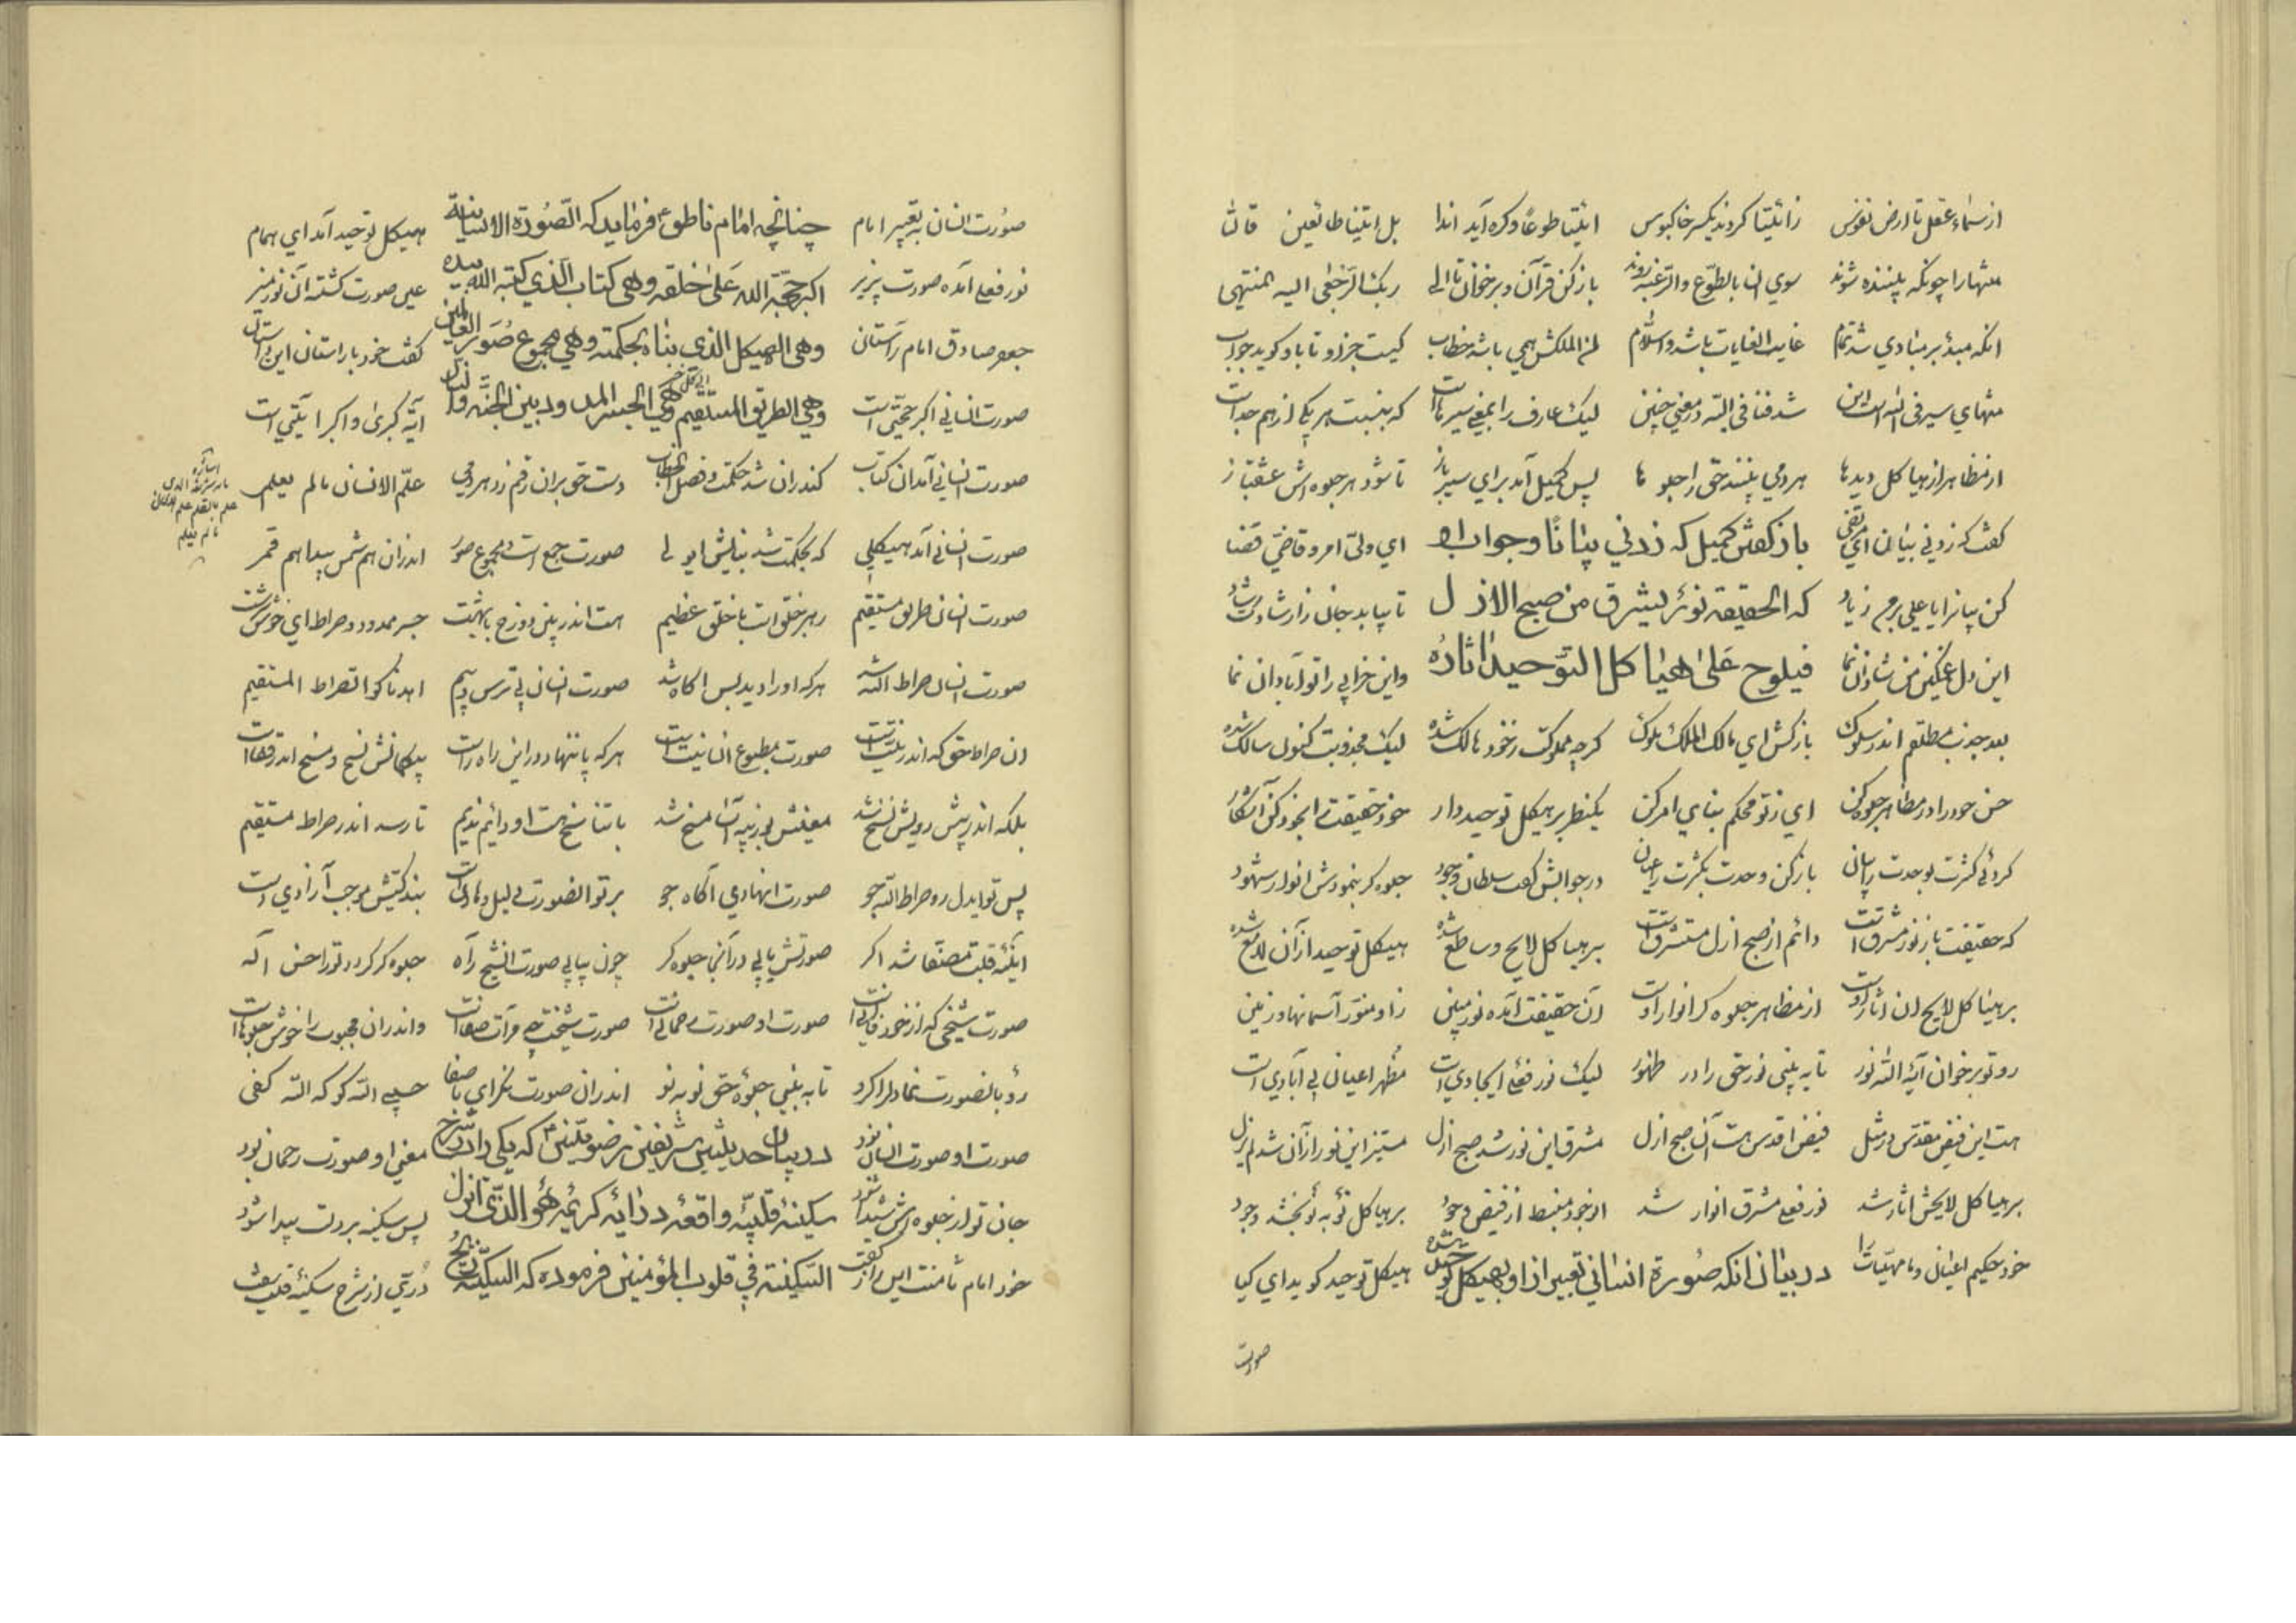 از سماء عقل تا ارض نفوس زائتیا کردند یکسر خاکبوس ائتیا طوعا و کره آید ندا بل اتینا طائعین قالتا
منتها را چونکه بیننده شوند سوی ان بالطوع والرغبه روند باز کن قرآن و برخوان تا الی ربک الرجعی الیه المنتهی
انکه مبدؤ بر مبادی شد تمام غایت الغایات باشد والسلام لمن الملکش همی باشد خطاب کیست جز او تا باو کوید جواب
منتهای سیر فی الله است این شد فنا فی الله در معنی چنین لیک عارف را بمعنی سیرهاست که بنسبت هر یکی از هم جداست
از مظاهر از هیاکل دیدها هر دمی بینند حق را جلوها پس کمیل آمد برای سیر باز تا شود هر جلوه اش عشقباز
کفت که زدنی بیانا ای مرتقی باز کفتن کمیل که زدنی بیانا و جواب او ای ولی امر و قاضی قضا
کن بیانرا یا علی بر من زیاد که الحقیقه نور یشرق من صبح الازل تا بیابد جان زارشاد رشاد
این دل غمکین من شادان نما فیلوح علی هیاکل التوحید اثاره واین خرابی را تو آبادان نما
بعد جذب مطلقم اندر سلوک باز کش ای مالک الملک ملوک کرچه مملوکت ز خود هالک شده لیک مجذوبت کنون سالک شده
حسن خود را در مظاهر جلوه کن ای ز تو محکم بنای امر کن یکنظر بر هیکل توحید دار خود حقیقت را بخود کن آشکار
کردئی کثرت بوحدت را بیان باز کن وحدت بکثرت را عیان در جوابش کفت سلطان وجود جلوه کر بنمودش انوار شهود
که حقیقت باز نور مشرق است دائم از صبح ازل مستشرق است بر هیاکل لایح و ساطع شده هیکل توحید از آن لامع شده
بر هیاکل لایح ان اثار اوست از مظاهر جلوه کر انوار اوست آن حقیقت آمده نور مبین زاو منور آسمانها و زمین
رو تو برخوان آیه الله نور تا به بینی نور حق را در ظهور لیک نور فعلی ایجادی است مظهر اعیان بی آبادی است
هست این فیض مقدس در مثل فیض اقدس هست آن صبح ازل مشرق این نور شد صبح ازل مستنیر این نور از آن شد لم یزل
بر هیاکل لایحش اثار شد نور فعلی مشرق انوار شد از وجود منبسط از فیض وجود بر هیاکل نو به نو بخشد وجود
خود حکیم اعیان و ماهیات را در بیان انکه صورة انسانی تعبیر از او بهیکل توحید شده هیکل توحید کوید ای کیا
صورت
صورت انسان به تعبیر امام چنانچه امام ناطق ع فرماید که الصورة الانسانیة هیکل توحید آمد ای همام
نور فعلی آمده صورت پزیر اکبر حجة الله علی خلقه وهی کتاب الذی کتبه الله بیده عین صورت کشته آن نور منیر
جعفر صادق امام راستان وهی الهیکل الذی بناه بحکمته وهی مجموع صور العالمین کفت خود با راستان این داستان
صورت انسانی اکبر حجتی است وهی الطریق المستقیم الی کل خیر وهی الجسر الممدود بین الجنة والنار آیه کبری و اکبر آیتی است
صورت انسانی آمد ان کتاب کندران شد حکمت و فصل الخطاب دست حق بر ان رقم زد هر دمی علم الانسان ما لم یعلمی
صورت انسانی آمد هیکلی که بحکمت شد بنایش ای ولی صورت جمع است و مجموع صور اندران هم شمس پیدا هم قمر
صورت انسان طریق مستقیم رهبر خلق است با خلق عظیم هست اندر بین دوزخ با بهشت جسر ممدود و صراط ای خوش سرشت
صورت انسان صراط الله شد هر که او را دید پس اکاه شد صورت انسان بی ترس و بیم اهدنا کو الصراط المستقیم
ان صراط حق که اندر نیت است صورت مطبوع انسانیت است هر که پا ننهاد در این راه راست بیکمانش نسخ و مسخ اندر قفاست
بلکه اندر پیش رویش نسخ شد معنیش بوزینه آسا مسخ شد با تناسخ هست او دائم ندیم تا رسد اندر صراط مستقیم
پس تو ایدل رو صراط الله جو صورت انهادی آکاه جو بر تو انصورت دلیل و هادی است بندکیش موجب آزادی است
اینه قلبت مصفا شد اکر صورتش یابی در آنجا جلوه کر چون بیابی صورت انشیخ راه جلوه کر کردد تو را حسن اله
صورت شیخی که از خود فانی است صورت او صورت رحمانی است صورت شیخت چه مرآت صفاست واندران محبوب را خوش جلوهاست
رو بانصورت نما دلرا کرو تا به بینی جلوه حق نو به نو اندران صورت نکر ای با صفا حسبی الله کو که الله کفی
صورت او صورت انسان بود در بیان حدیثین شریفین رضویتین ع که یکی در شرح معنی او صورت رحمان بود
جان تو از جلوه اش شیدا شود سکینه قلبیه واقعه در ایه کریمه هو الذی انزل پس سکینه بر دلت پیدا شود
خود امام ثامنت این راز کفت السکینة فی قلوب المؤمنین فرموده که السکینة ریح دری از شرح سکینه قلب سفت